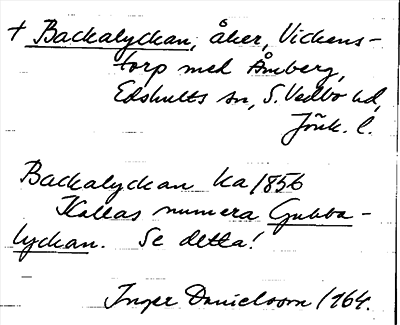 † Backalyckan, åker, Vickens-
torp med Åmberg,
Edshults sn, S. Vedbo hd,
Jönk. l.
Backalyckan ka 1856
Kallas numera Gubba-
lyckan. Se detta!
Inger Danielsson 1964.